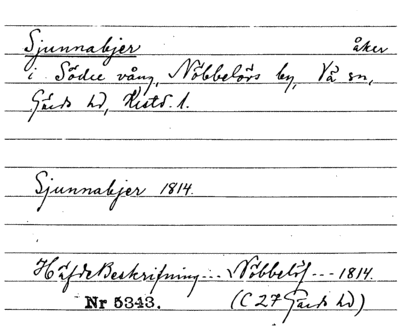 Sjunnabjer åker
i Södre vång, Nöbbelövs by, Vä sn,
Gärds hd, Kristd. l.
Sjunnabjer 1814.
HäfdeBeskrifning... Nöbbelöf --- 1814.
Nr 5343. (C 27 Gärds hd)